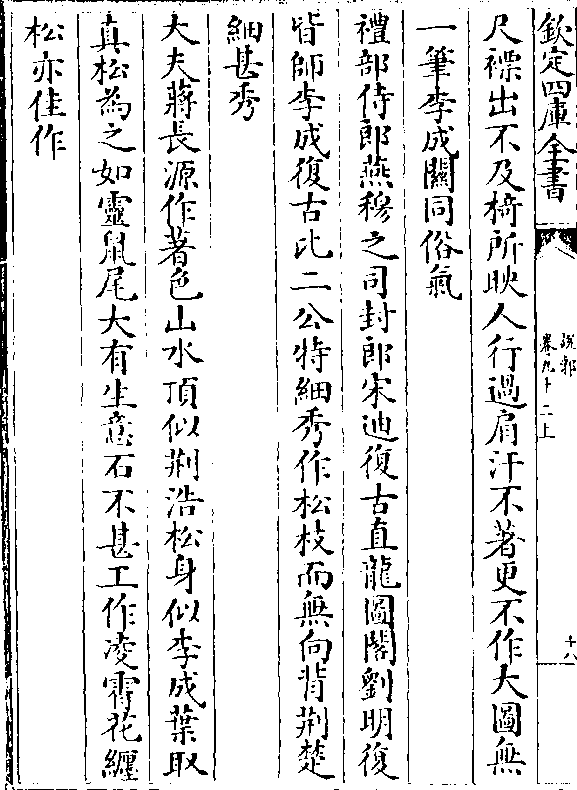 欽定四庫全書
說郛
卷九十二上
十八
尺褾出不及椅所映人行過肩汗不著更不作大圖無
一筆李成關同俗氣
禮部侍郎燕穆之司封郎宋迪復古直龍圖閣劉明復
皆師李成復古比二公特細秀作松枝而無向背荆楚
細甚秀
大夫蔣長源作著色山水頂似荆浩松身似李成葉取
真松為之如靈鼠尾大有生意石不甚工作凌霄花纒
松亦佳作